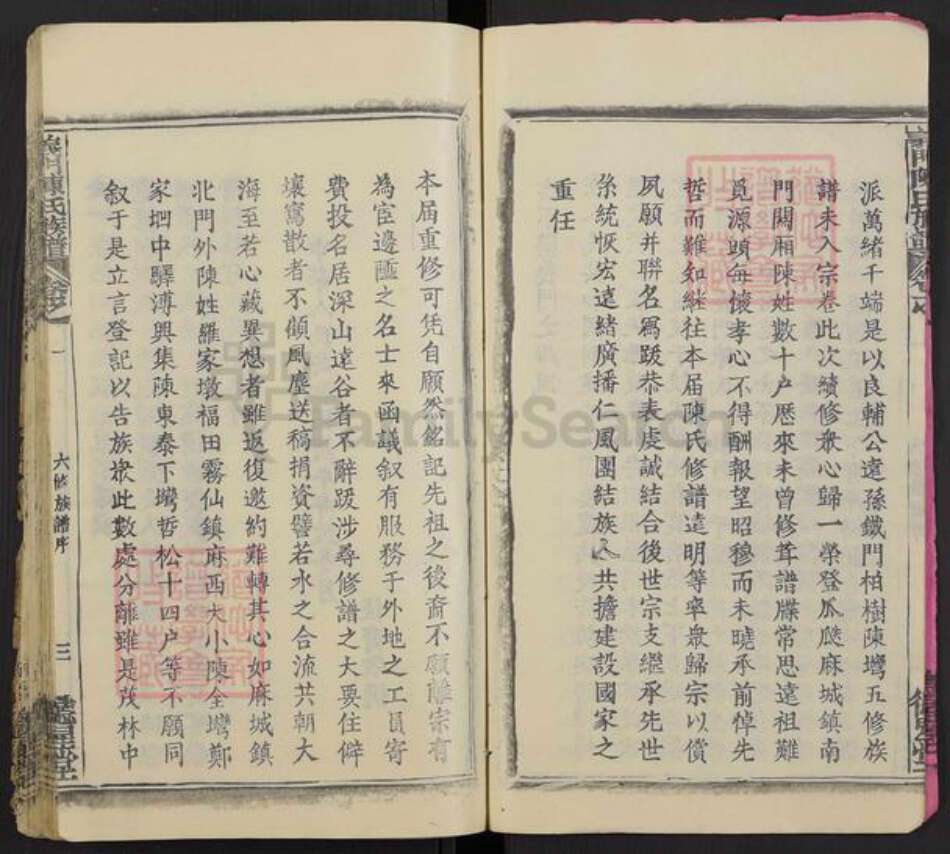 派萬緒千端是以良輔公遠孫鐵門柏樹陳塆五修族
譜未入宗卷此次續修衆心歸一榮登瓜瓞麻城鎮南
門関廂陳姓數十户歷來未曾修葺譜牒常思遠祖難
覓源頭每懷孝心不得酬報望昭穆而未曉承前悼先
哲而難知継往本届陳氏修譜達明等率衆歸宗以償
夙願并聯名爲跋恭表虔誠結合後世宗支繼承先世
糸統恢宏遠緒廣播仁風團結族人共擔建設國家之
重任
本届重修可凭自願然銘記先祖之後裔不願離宗有
為宦邊陲之名士來函議叙有服務于外地之工員寄
費投名居深山遠谷者不辭跋涉尋修譜之大要住僻
壤窵散者不傾風塵送稿捐資譬若水之合流共朝大
海至若心藏異想者雖返復邀約難轉其心如麻城鎮
北門外陳姓羅家墩福田霧仙鎮麻西大小陳全塆鄭
家垇中驛溥興集陳東泰下塆哲松十四户等不願同
叙于是立言登記以告族衆此數處分離雖是茂林中
陳氏族譜
六修族譜序
三
FamilySearch